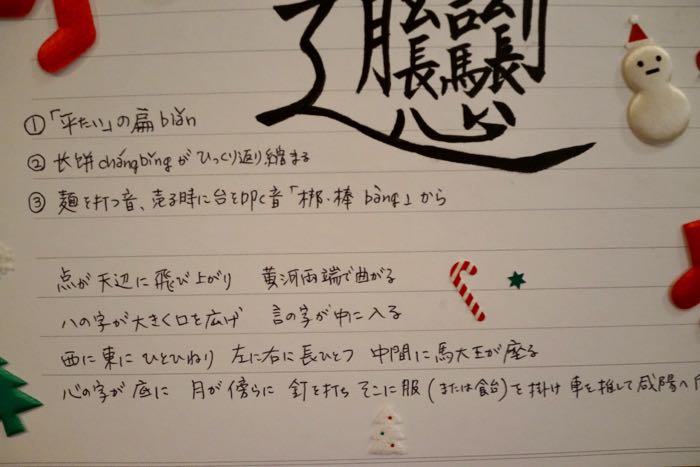 𰻞
①「平たい」の扁 biǎn
② 长饼 chángbǐng が ひっくり返り縮まる
③ 麺を打つ音、売る時に台を叩く音「梆・棒 bàng」から
点が天辺に飛び上がり 黄河両端で曲がる
八の字が大きく口を広げ 言の字が中に入る
西に東に ひとひねり 左に右に長ひとつ 中間に馬大王が座る
心の字が底に 月が傍らに 釘を打ち そこに服(または飴)を掛け 車を推して咸陽へ